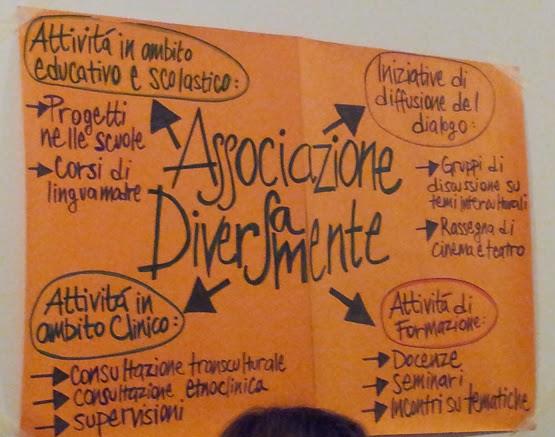 Attivitá in ambito
educativo e scolastico:
Progetti
nelle scuole
Corsi di
lingua madre
Iniziative di
diffusione del
dialogo:
Gruppi di
discussione su
temi interculturali
Rassegna di
cinema e teatro
Associazione
DiverSamente
Attivitá in
ambito Clinico:
Consultazione transculturale
consultazione etnoclinica
supervisioni
Attivitá di
Formazione:
Docenze
Seminari
Incontri su tematiche